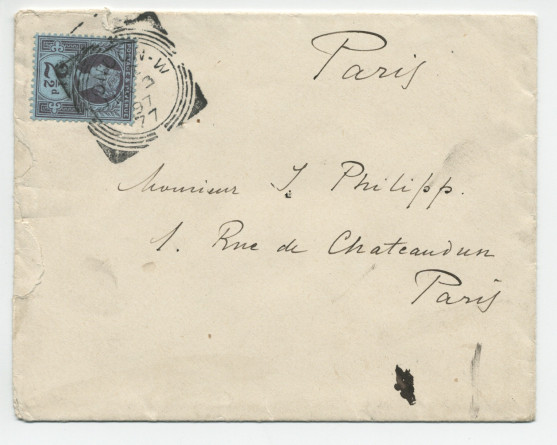 Paris
N-W
97
77
2½d
Monsieur I. Philipp.
1. Rue de Chateaudun
Paris